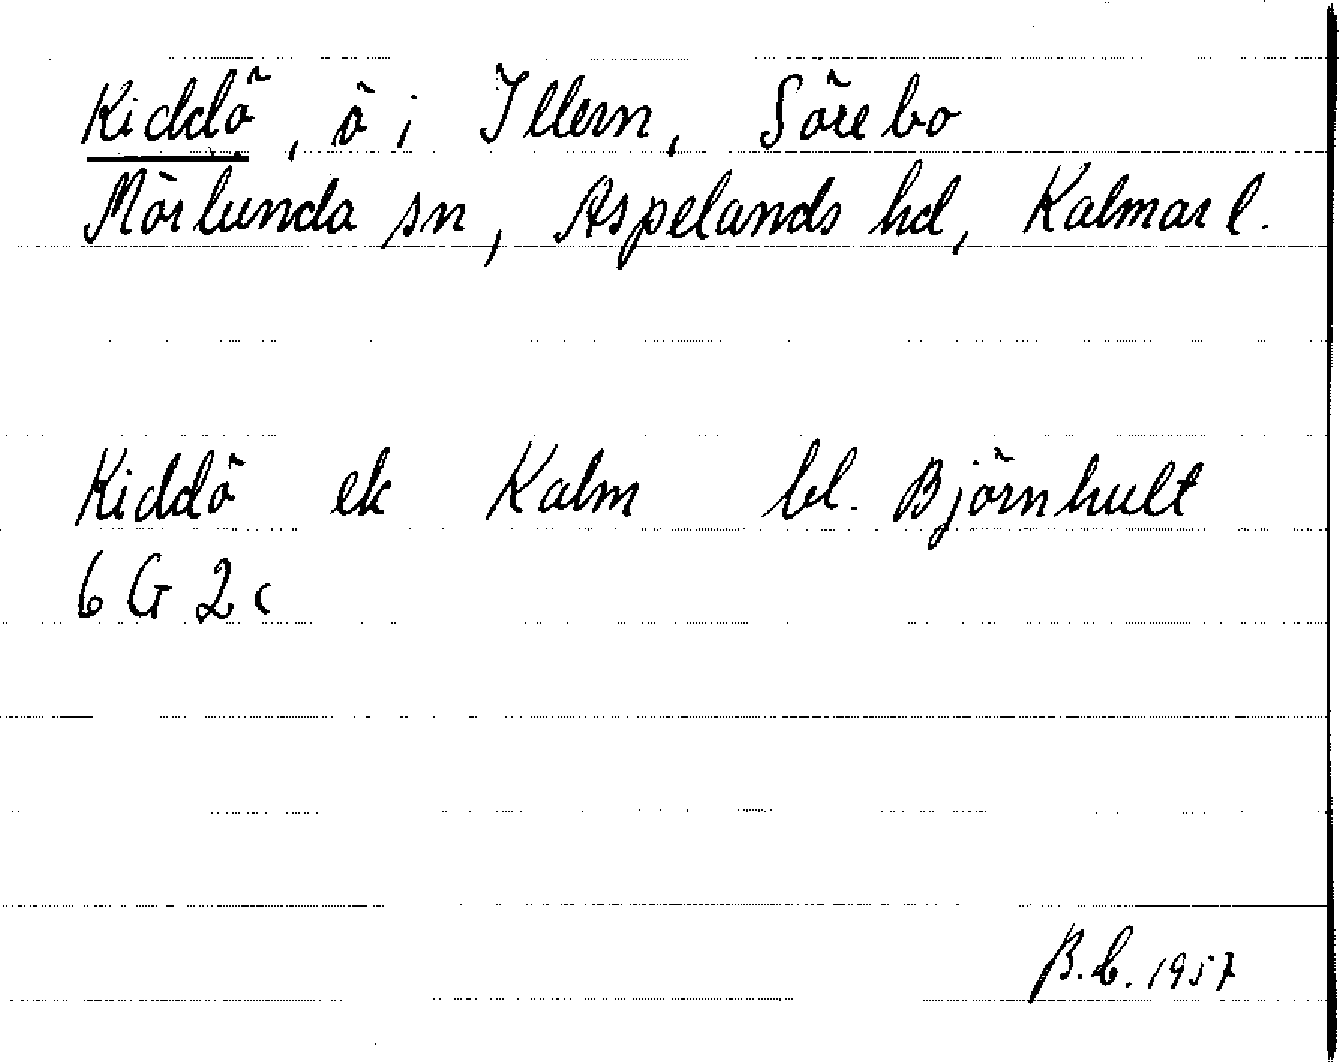 Kiddö, ö i Illern, Sörebo
Mörlunda sn, Aspelands hd, Kalmar l.
Kiddö ek Kalm bl. Björnhult
6 G 2 c
B.C. 1957